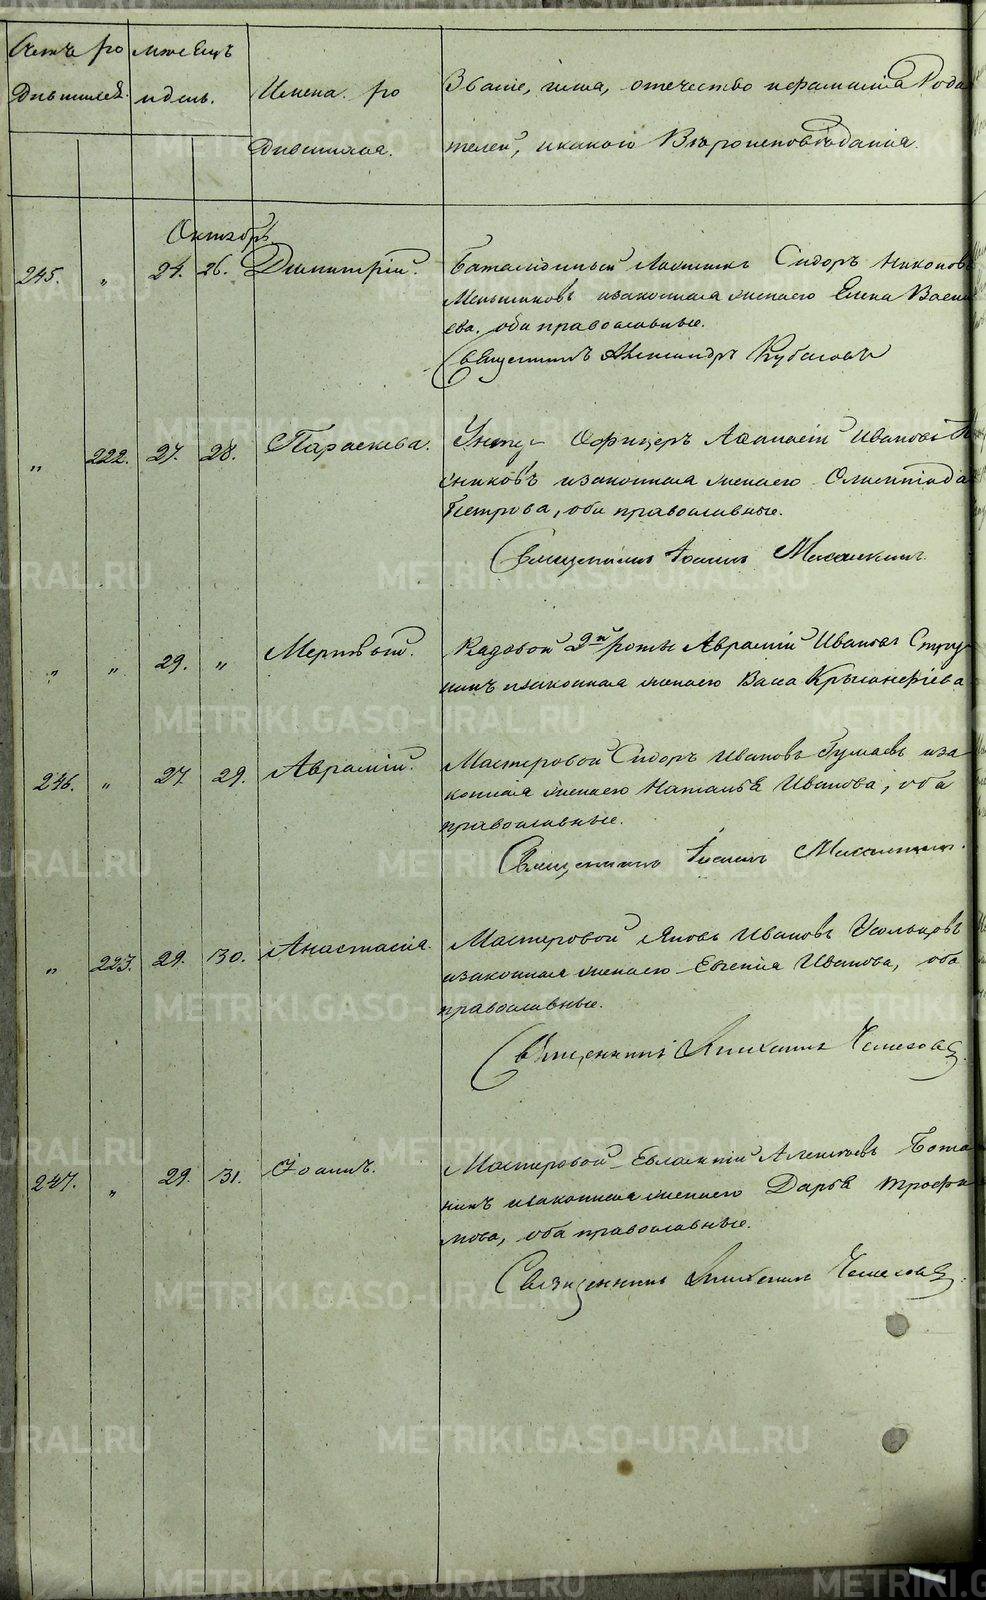 Счетъ ро
дившихся.
мѣсяцъ
и день.
Имена ро
дившихся.
Званіе, имя, отечество и фамилія Роди
телей, и какого Вѣроисповѣданія.
Октябрь
245. " 24. 26. Димитрій. Сидоръ Никоновъ
Меньшиковъ и законная жена его Елена Васи
ева, оба православные.
Священникъ Александръ Кубасовъ
" 222. 27. 28. Параскева. Унтеръ Офицеръ Аѳанасій Ивановъ
сниковъ и законная жена его Олимпіада
Петрова, оба православные.
Священникъ Іоаннъ
" " 29. " Мертвой. Рядовой 2й роты Аврамій Ивановъ Стру
нинъ и законная жена его Васа
246. " 27. 29. Аврамій. Мастеровой Сидоръ Ивановъ и за
конная жена его Наталья Иванова, оба
православные.
Священникъ Іоаннъ
" 223. 29. 30. Анастасія. Мастеровой Яковъ Ивановъ Усольцовъ
и законная жена его Евгенія Иванова, оба
православные.
Священникъ Михаилъ
247. " 29. 31. Іоаннъ. Мастеровой Евлампій Алексѣевъ Пота
нинъ и законная жена его Дарья Трофи
мова, оба православные.
Священникъ Михаилъ
METRIKI.GASO-URAL.RU